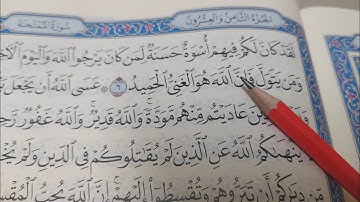 الجزء الثامن والعشرون
سورة الممتحنة
لَقَدْ كَانَ لَكُمْ فِيهِمْ أُسْوَةٌ حَسَنَةٌ لِّمَن كَانَ يَرْجُوا۟ ٱللَّهَ وَٱلْيَوْمَ ٱلْءَاخِ
وَمَن يَتَوَلَّ فَإِنَّ ٱللَّهَ هُوَ ٱلْغَنِىُّ ٱلْحَمِيدُ ٦ ۞ عَسَى ٱللَّهُ أَن يَجْعَلَ بَ
ٱلَّذِينَ عَادَيْتُم مِّنْهُم مَّوَدَّةً ۚ وَٱللَّهُ قَدِيرٌ ۚ وَٱللَّهُ غَفُورٌ رَّحِ
يَنْهَىٰكُمُ ٱللَّهُ عَنِ ٱلَّذِينَ لَمْ يُقَٰتِلُوكُمْ فِى ٱلدِّينِ وَلَمْ يُخْ
دِيَٰرِكُمْ أَن تَبَرُّوهُمْ وَتُقْسِطُوٓا۟ إِلَيْهِمْ ۚ إِنَّ ٱللَّهَ يُحِبُّ ٱلْمُقْسِ